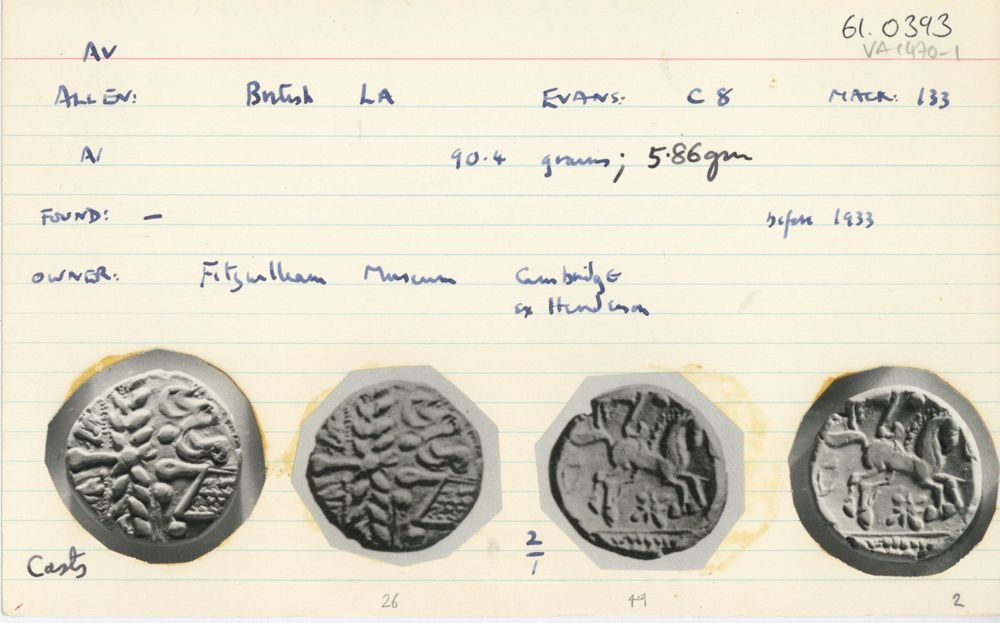 61.0393
VA1470-1
AV
ALLEN: British LA EVANS: C 8 MACK: 133
AV 90.4 grams; 5.86gm
FOUND: — before 1933
OWNER: Fitzwilliam Museum Cambridge
ex Henderson
2
1
Casts
26 49 2